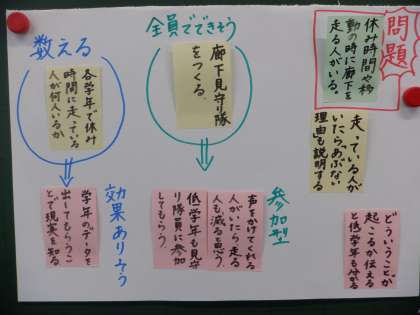 問題
休み時間や移
動の時に廊下を
走る人がいる。
走っている人が
いたらあぶない
理由も説明する
どういうことが
起こるか伝える
と低学年も分かる
全員でできそう
廊下見守り隊
をつくる。
参加型
声をかけてくれる
人がいたら走る
人も減ると思う。
低学年も見守
り隊員に参加
してもらう。
数える
各学年で休み
時間に走っている
人が何人いるか
効果ありそう
学年のデータを
出してもらうこ
とで現実を知る